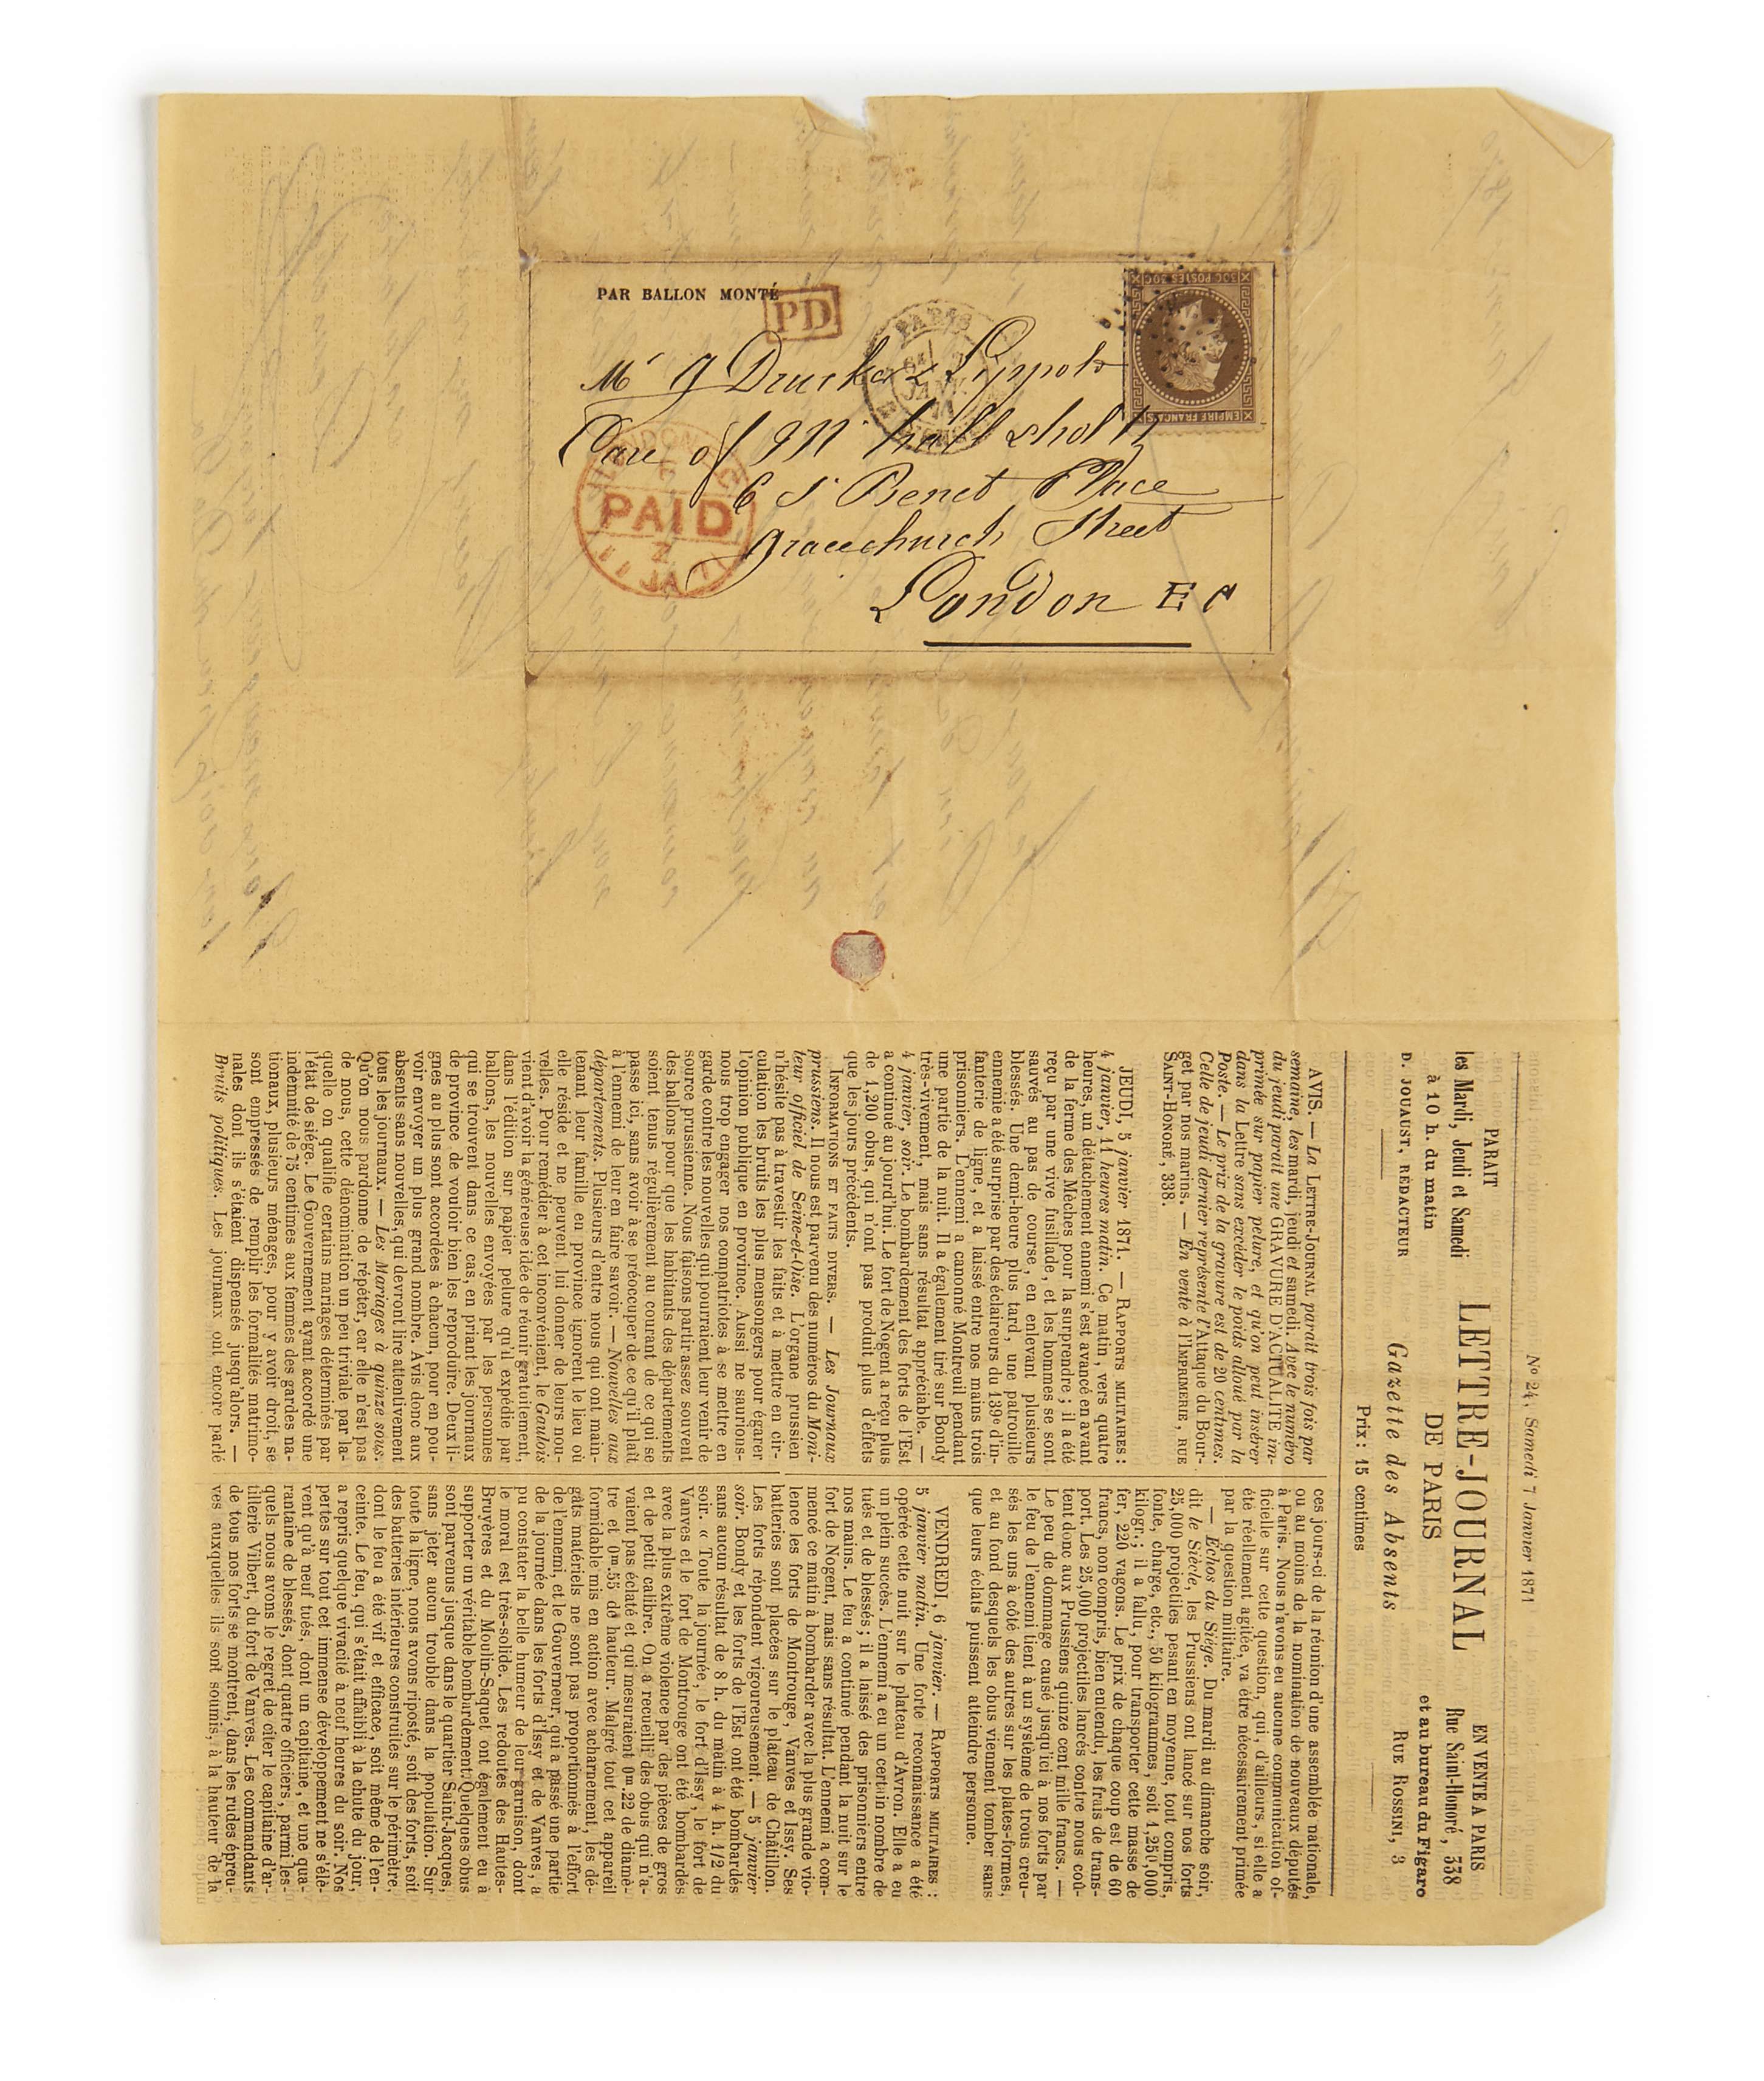 PAR BALLON MONTÉ
PD
PARIS
JANV.
30C POSTES 30C
EMPIRE FRANCAIS
Care of Mr
6 St Benet Place
Gracechurch Street
London E C
LONDON
PAID
11 JA 71
No 24, Samedi 7 Janvier 1871
PARAIT
les Mardi, Jeudi et Samedi
à 10 h. du matin
D. JOUAUST, RÉDACTEUR
LETTRE-JOURNAL
DE PARIS
Gazette des Absents
Prix : 15 centimes
EN VENTE A PARIS
Rue Saint-Honoré, 338
et au bureau du Figaro
RUE ROSSINI, 3
AVIS. — La LETTRE-JOURNAL paraît trois fois par
semaine, les mardi, jeudi et samedi. Avec le numéro
du jeudi paraît une GRAVURE D'ACTUALITÉ im-
primée sur papier pelure, et qu'on peut insérer
dans la Lettre sans excéder le poids alloué par la
Poste. — Le prix de la gravure est de 20 centimes.
Celle de jeudi dernier représente l'Attaque du Bour-
get par nos marins. — En vente à l'IMPRIMERIE, RUE
SAINT-HONORÉ, 338.
JEUDI, 5 janvier 1871. — RAPPORTS MILITAIRES :
4 janvier, 11 heures matin. Ce matin, vers quatre
heures, un détachement ennemi s'est avancé en avant
de la ferme des Mèches pour la surprendre ; il a été
reçu par une vive fusillade, et les hommes se sont
sauvés au pas de course, en enlevant plusieurs
blessés. Une demi-heure plus tard, une patrouille
ennemie a été surprise par des éclaireurs du 139e d'in-
fanterie de ligne, et a laissé entre nos mains trois
prisonniers. L'ennemi a canonné Montreuil pendant
une partie de la nuit. Il a également tiré sur Bondy
très-vivement, mais sans résultat appréciable. —
4 janvier, soir. Le bombardement des forts de l'Est
a continué aujourd'hui. Le fort de Nogent a reçu plus
de 1,200 obus, qui n'ont pas produit plus d'effets
que les jours précédents.
INFORMATIONS ET FAITS DIVERS. — Les Journaux
prussiens. Il nous est parvenu des numéros du Moni-
teur officiel de Seine-et-Oise. L'organe prussien
n'hésite pas à travestir les faits et à mettre en cir-
culation les bruits les plus mensongers pour égarer
l'opinion publique en province. Aussi ne saurions-
nous trop engager nos compatriotes à se mettre en
garde contre les nouvelles qui pourraient leur venir de
source prussienne. Nous faisons partir assez souvent
des ballons pour que les habitants des départements
soient tenus régulièrement au courant de ce qui se
passe ici, sans avoir à se préoccuper de ce qu'il plaît
à l'ennemi de leur en faire savoir. — Nouvelles aux
départements. Plusieurs d'entre nous qui ont main-
tenant leur famille en province ignorent le lieu où
elle réside et ne peuvent lui donner de leurs nou-
velles. Pour remédier à cet inconvénient, le Gaulois
vient d'avoir la généreuse idée de réunir gratuitement,
dans l'édition sur papier pelure qu'il expédie par
ballons, les nouvelles envoyées par les personnes
qui se trouvent dans ce cas, en priant les journaux
de province de vouloir bien les reproduire. Deux li-
gnes au plus sont accordées à chacun, pour en pou-
voir envoyer un plus grand nombre. Avis donc aux
absents sans nouvelles, qui devront lire attentivement
tous les journaux. — Les Mariages à quinze sous.
Qu'on nous pardonne de répéter, car elle n'est pas
de nous, cette dénomination un peu triviale par la-
quelle on qualifie certains mariages déterminés par
l'état de siége. Le Gouvernement ayant accordé une
indemnité de 75 centimes aux femmes des gardes na-
tionaux, plusieurs ménages, pour y avoir droit, se
sont empressés de remplir les formalités matrimo-
niales dont ils s'étaient dispensés jusqu'alors. —
Bruits politiques. Les journaux ont encore parlé
ces jours-ci de la réunion d'une assemblée nationale,
ou au moins de la nomination de nouveaux députés
à Paris. Nous n'avons eu aucune communication of-
ficielle sur cette question, qui, d'ailleurs, si elle a
été réellement agitée, va être nécessairement primée
par la question militaire.
— Échos du Siége. Du mardi au dimanche soir,
dit le Siècle, les Prussiens ont lancé sur nos forts
25,000 projectiles pesant en moyenne, tout compris,
fonte, charge, etc., 50 kilogrammes, soit 1,250,000
kilogr.; il a fallu, pour transporter cette masse de
fer, 220 vagons. Le prix de chaque coup est de 60
francs, non compris, bien entendu, les frais de trans-
port. Les 25,000 projectiles lancés contre nous coû-
tent donc aux Prussiens quinze cent mille francs. —
Le peu de dommage causé jusqu'ici à nos forts par
le feu de l'ennemi tient à un système de trous creu-
sés les uns à côté des autres sur les plates-formes,
et au fond desquels les obus viennent tomber sans
que leurs éclats puissent atteindre personne.
VENDREDI, 6 janvier. — RAPPORTS MILITAIRES :
5 janvier matin. Une forte reconnaissance a été
opérée cette nuit sur le plateau d'Avron. Elle a eu
un plein succès. L'ennemi a eu un certain nombre de
tués et de blessés ; il a laissé des prisonniers entre
nos mains. Le feu a continué pendant la nuit sur le
fort de Nogent, mais sans résultat. L'ennemi a com-
mencé ce matin à bombarder avec la plus grande vio-
lence les forts de Montrouge, Vanves et Issy. Ses
batteries sont placées sur le plateau de Châtillon.
Les forts répondent vigoureusement. — 5 janvier
soir. Bondy et les forts de l'Est ont été bombardés
sans aucun résultat de 8 h. du matin à 4 h. 1/2 du
soir. « Toute la journée, le fort d'Issy, le fort de
Vanves et le fort de Montrouge ont été bombardés
avec la plus extrême violence par des pièces de gros
et de petit calibre. On a recueilli des obus qui n'a-
vaient pas éclaté et qui mesuraient 0m.22 de diamè-
tre et 0m.55 de hauteur. Malgré tout cet appareil
formidable mis en action avec acharnement, les dé-
gâts matériels ne sont pas proportionnés à l'effort
de l'ennemi, et le Gouverneur, qui a passé une partie
de la journée dans les forts d'Issy et de Vanves, a
pu constater la belle humeur de leur garnison, dont
le moral est très-solide. Les redoutes des Hautes-
Bruyères et du Moulin-Saquet ont également eu à
supporter un véritable bombardement. Quelques obus
sont parvenus jusque dans le quartier Saint-Jacques,
sans jeter aucun trouble dans la population. Sur
toute la ligne, nous avons riposté, soit des forts, soit
des batteries intérieures construites sur le périmètre,
dont le feu a été vif et efficace, soit même de l'en-
ceinte. Le feu, qui s'était affaibli à la chute du jour,
a repris quelque vivacité à neuf heures du soir. Nos
pertes sur tout cet immense développement ne s'élè-
vent qu'à neuf tués, dont un capitaine, et une qua-
rantaine de blessés, dont quatre officiers, parmi les-
quels nous avons le regret de citer le capitaine d'ar-
tillerie Vilbert, du fort de Vanves. Les commandants
de tous nos forts se montrent, dans les rudes épreu-
ves auxquelles ils sont soumis, à la hauteur de la